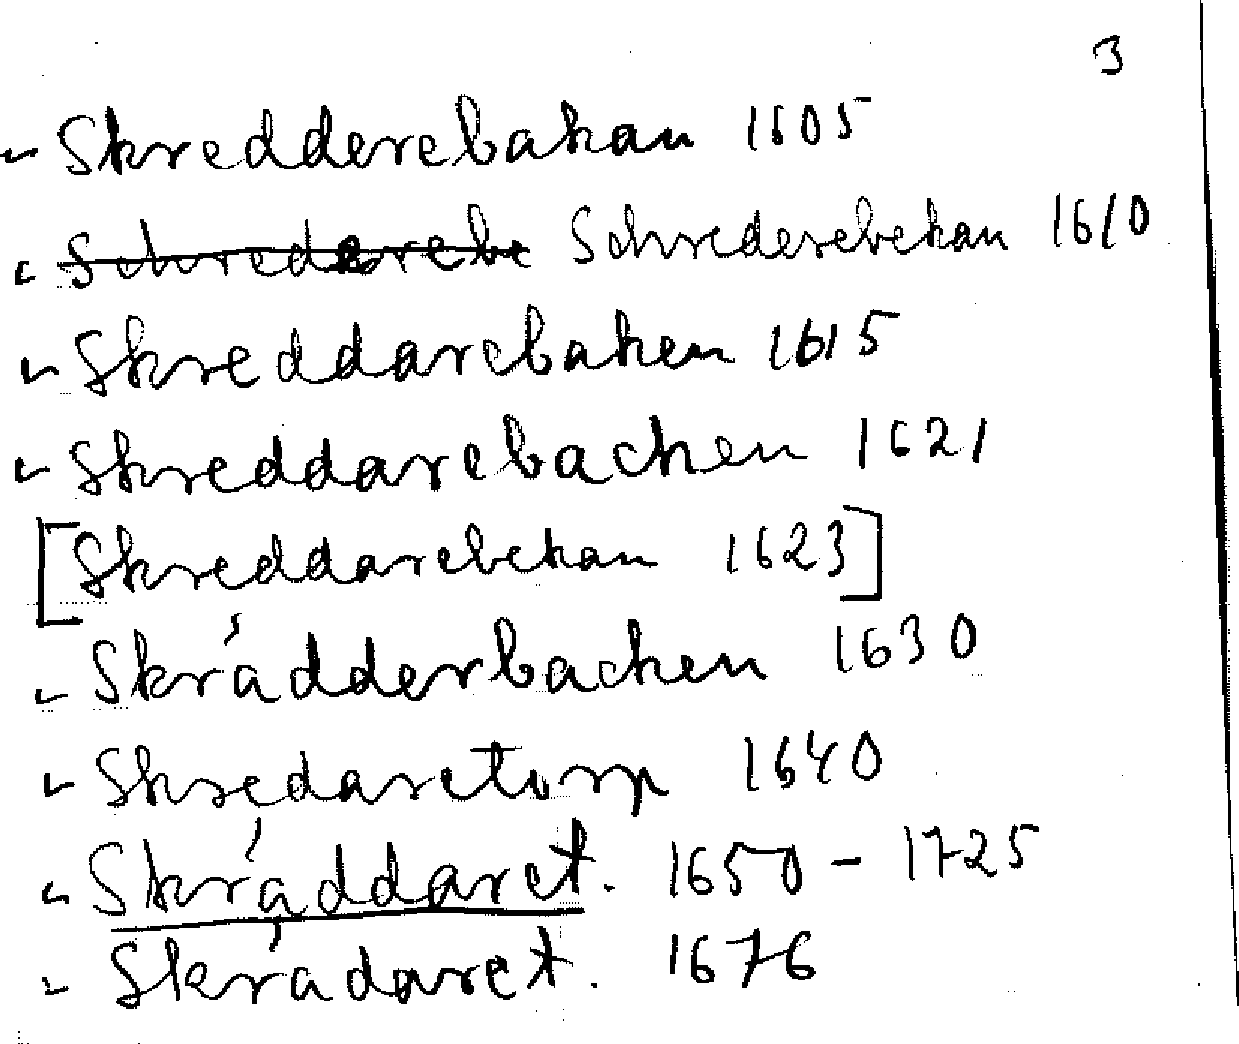 3
" Skredderebakan 1605
" ~~Schredarebe~~ Schrederebekan 1610
" Skreddarebaken 1615
" Skreddarebacken 1621
[Skreddarebekan 1623]
" Skrádderbacken 1630
" Skredaretorp 1640
" Skráddaret. 1650 - 1725
" Skrádaret. 1676